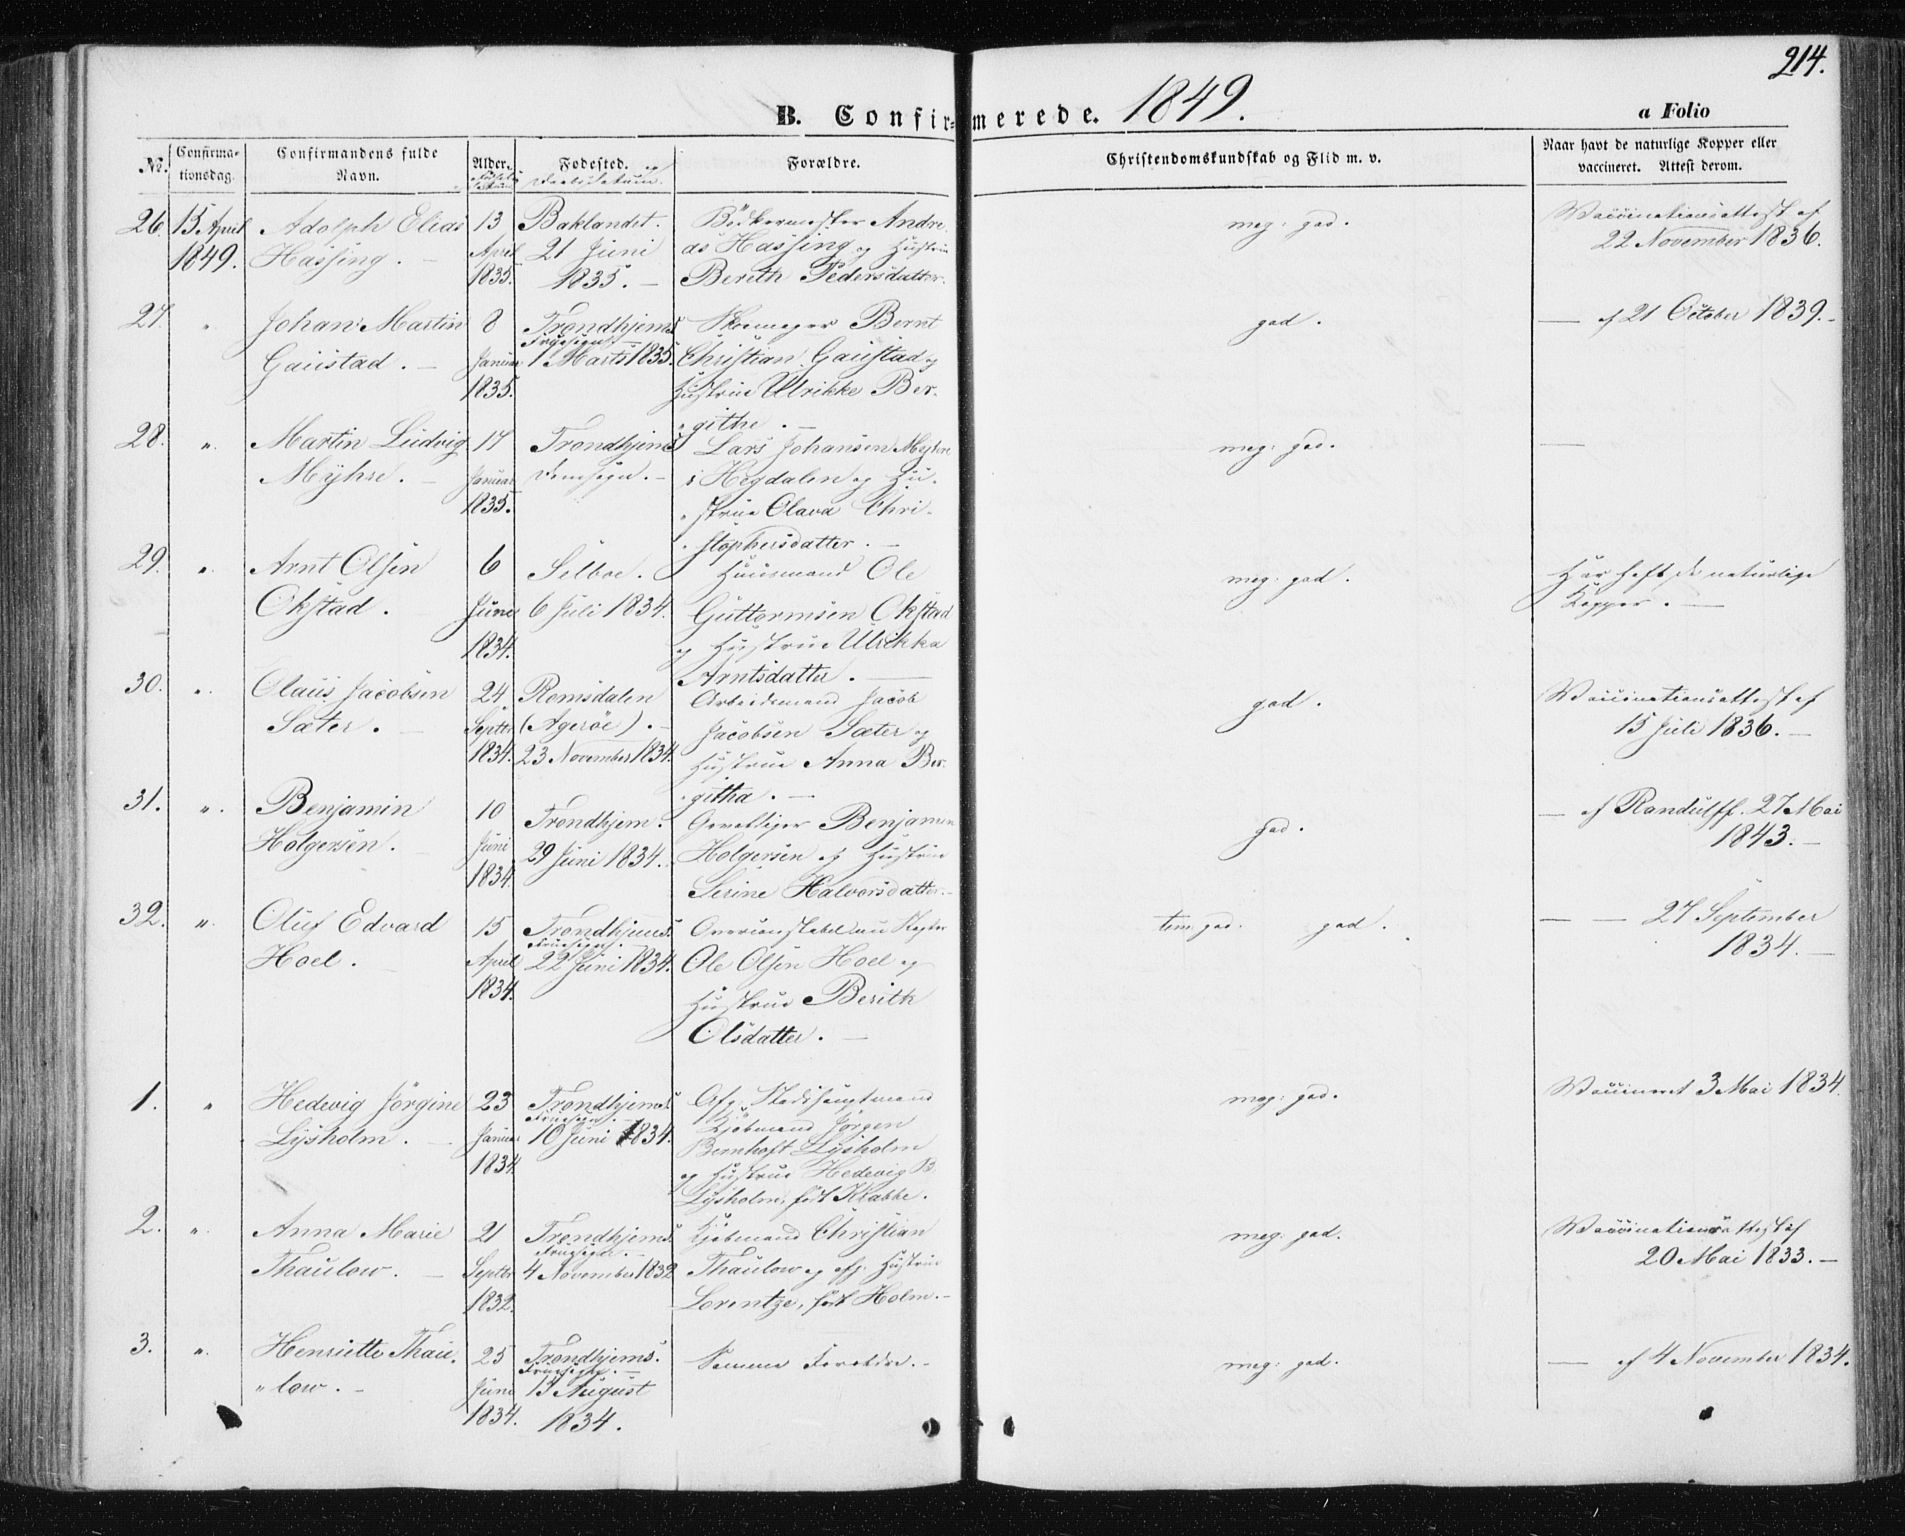 214.
B. Confirmerede. 1849.
a Folio
No.
Confirmationsdag.
Confirmandens fulde Navn.
Alder.
Fødested.
Forældre.
Christendomskundskab og Flid m. v.
Naar havt de naturlige Kopper eller vaccineret. Attest derom.
26.
15 April
1849.
Adolph Elias
Hassing.
13
April
1835.
Baklandet.
21 Juni
1835.
Bödkermester Andre
as Hassing og Hustrue
Bereth Pedersdatter.
meg: god.
Vaccinationsattest af
22 November 1836.
27.
"
Johan Martin
Gaustad.
8
Januar
1835.
Trondhjems
Fruesogn
1 Marts 1835.
Skomager Bernt
Christian Gaustad og
Hustrue Ulrikke Ber-
githe.
god.
— af 21 October 1839.
28.
"
Martin Ludvig
Myhre.
17
Januar
1835.
Trondhjems
Domsogn.
Lars Johansen Myhre
i Hegdalen og Hu-
strue Olava Chri-
stophersdatter.
meg: god.
—
29.
"
Arnt Olsen
Okstad.
6
Juni
1834.
Selboe.
6 Juli 1834.
Huusmand Ole
Guttormsen Okstad
og Hustrue Ulrikka
Arntsdatter.
meg: god.
Har haft de naturlige
Kopper.
30.
"
Claus Jacobsen
Sæter.
24
Septbr
1834.
Romsdalen
(Agerøe).
23 November 1834.
Arbeidsmand Jacob
Jacobsen Sæter og
Hustrue Anna Ber-
githa.
god.
Vaccinationsattest af
15 Juli 1836.
31.
"
Benjamin
Holgersen.
10
Juni
1834.
Trondhjem.
29 Juni 1834.
Benjamin
Holgersen og Hustrue
Serine Halvorsdatter.
god.
— af Randulff. 27 Mai
1843.
32.
"
Oluf Edvard
Hoel.
15
April
1834.
Trondhjems
Fruesogn.
22 Juni 1834.
Ole Olsen Hoel og
Hustrue Berith
Olsdatter.
tem: god. god.
— — 27 September
1834.
1.
"
Hedevig Jörgine
Lysholm.
23
Januar
1834.
Trondhjems
Fruesogn.
10 Juni 1834.
Afg. Stadshauptmand
Kjøbmand Jörgen
Lysholm
og Hustrue Hedevig B.
Lysholm, født Krabbe.
meg: god.
Vaccineret 3 Mai 1834.
2.
"
Anna Marie
Thaulow.
21
Septbr
1832.
Trondhjems
Fruesogn.
4 November 1832
Kjøbmand Christian
Thaulow og afg. Hustrue
Lorentze, født Holm.
meg: god.
Vaccinationsattest af
20 Mai 1833.
3.
"
Henriette Thau-
low.
25
Juni
1834.
Trondhjems.
Fruesogn.
13 August
1834.
Samme Forældre.
meg: god.
— af 4 November 1834.